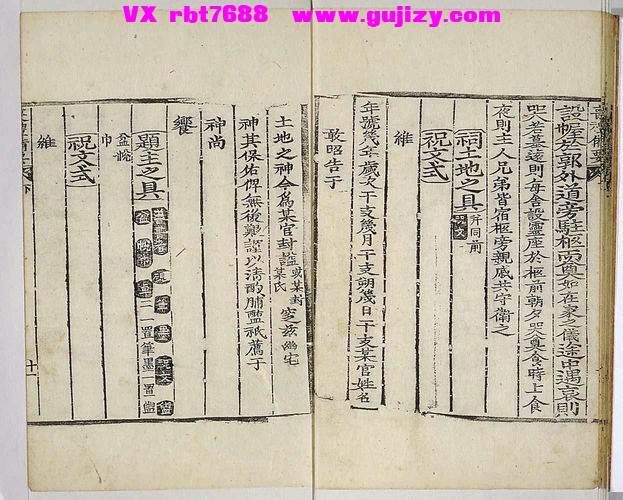 VX rbt7688 www.gujizy.com
設幄於郭外道旁駐柩而奠如在家之儀途中遇哀則
哭若墓遠則每舍設靈座於柩前朝夕哭奠食時上食
夜則主人兄弟皆宿柩旁親戚共守衛之
祠土地之具 并同前
祝文式
維
年號幾年歲次干支幾月干支朔幾日干支某官姓名
敢昭告于
土地之神今爲某官封謚 或某封某氏 窆茲幽宅
神其保佑俾無後艱謹以清酌脯醢祗薦于
神尚
饗
題主之具 一置筆墨一置盥
盆帨
巾
祝文式
維